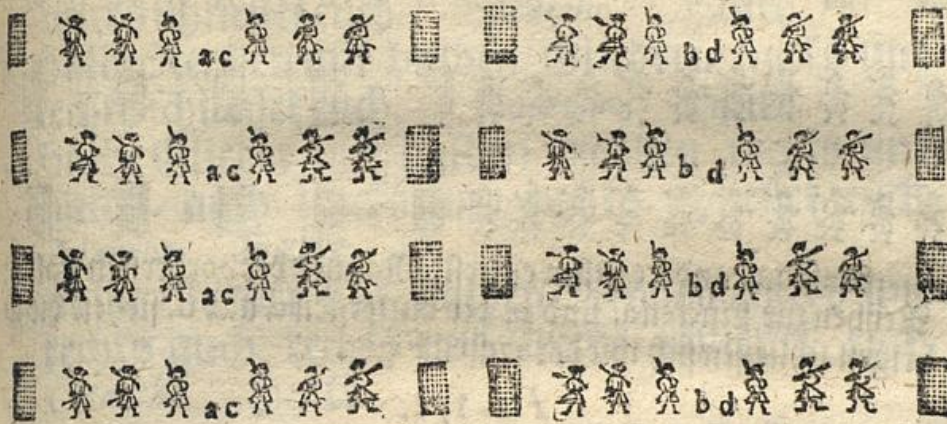 ac bd
ac b d
ac bd
ac bd